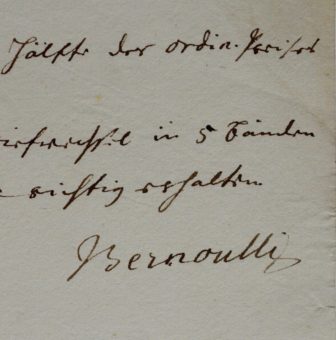 Hälfte des ordin. Preises
briefwechsel in 5 Bänden
richtig erhalten
Bernoulli